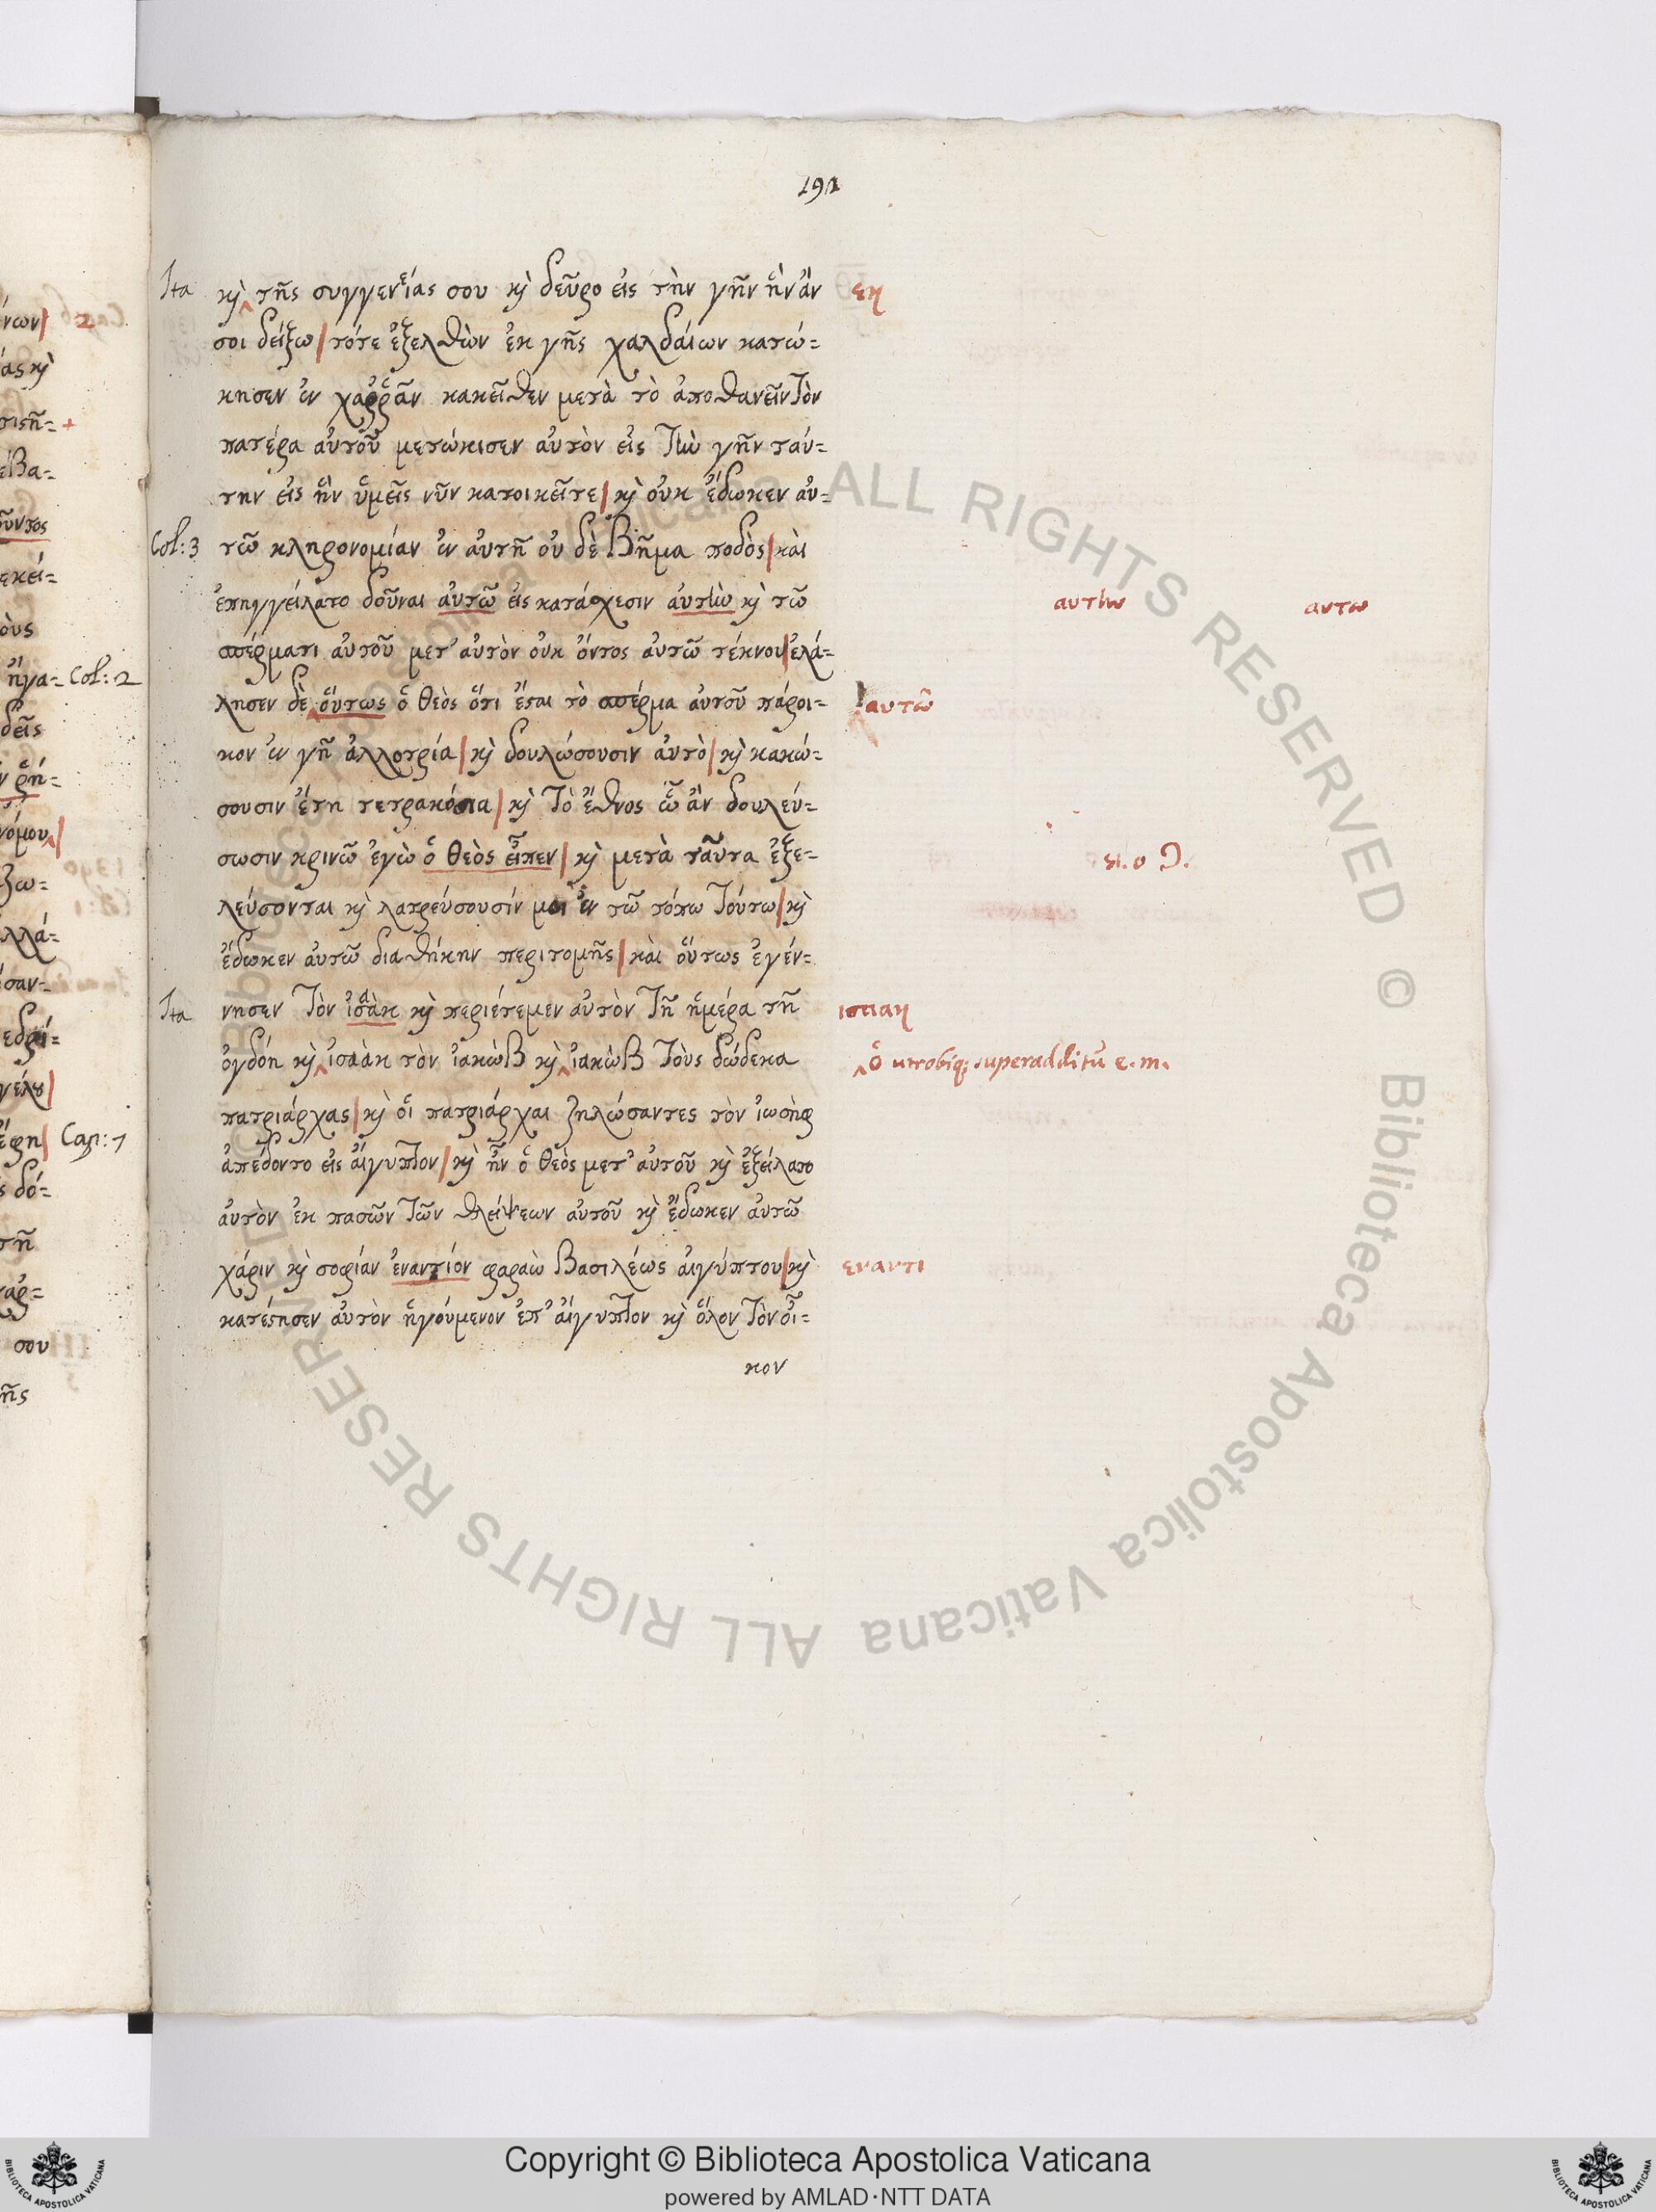 191
Ita κὶ τῆς συγγενείας σου κὶ δεῦρο εἰς τὴν γῆν ἣν ἄν εκ
σοι δείξω/τότε ἐξελθὼν ἐκ γῆς χαλδαίων κατώ=
κησεν ἐν χαῤῥὰν κακεῖθεν μετὰ τὸ ἀποθανεῖν τὸν
πατέρα αὐτοῦ μετώκισεν αὐτὸν εἰς τὴν γῆν ταύ=
την εἰς ἣν ὑμεῖς νῦν κατοικεῖτε/κὶ οὐκ ἔδωκεν αὐ=
Col:3 τῶ κληρονομίαν ἐν αὐτῆ οὐ δὲ βῆμα ποδὸς/καὶ
ἐπηγγείλατο δοῦναι αὐτῶ εἰς κατάσχεσιν αὐτὴν κὶ τῶ αυτην αυτω
σπέρματι αὐτοῦ μετ' αὐτὸν οὐκ ὄντος αὐτῶ τέκνου/ἐλά=
λησεν δὲ οὕτως ὁ θεὸς ὅτι ἔσται τὸ σπέρμα αὐτοῦ πάροι= αυτῶ
κον ἐν γῆ ἀλλοτρία/κὶ δουλώσουσιν αὐτὸ/κὶ κακώ=
σουσιν ἔτη τετρακόσια/κὶ τὸ ἔθνος ὧ ἂν δουλεύ=
σωσιν κρινῶ ἐγὼ ὁ θεὸς εἶπεν/κὶ μετὰ ταῦτα ἐξε=
λεύσονται κὶ λατρεύσουσίν μοι ἐν τῶ τόπω τούτω/κὶ
ἔδωκεν αὐτῶ διαθήκην περιτομῆς/καὶ οὕτως ἐγέν=
Ita νησεν τὸν ἰσαὰκ κὶ περιέτεμεν αὐτὸν τῆ ἡμέρα τῆ
ὀγδόη κὶ ἰσαὰκ τὸν ἰακὼβ κὶ ἰακὼβ τοὺς δώδεκα ὁ utrobiq; superadditū e. m.
πατριάρχας/κὶ οἱ πατριάρχαι ζηλώσαντες τὸν ἰωσὴφ
ἀπέδοντο εἰς αἴγυπτον/κὶ ἦν ὁ θεὸς μετ' αὐτοῦ κὶ ἐξείλατο
αὐτὸν ἐκ πασῶν τῶν θλείψεων αὐτοῦ κὶ ἔδωκεν αὐτῶ
χάριν κὶ σοφίαν ἐναντίον φαραὼ βασιλέως αἰγύπτου/κὶ εναντι
κατέστησεν αὐτὸν ἡγούμενον ἐπ' αἴγυπτον κὶ ὅλον τὸν οἶ=
κον
Col:2
Cap:7
Copyright © Biblioteca Apostolica Vaticana
powered by AMLAD·NTT DATA